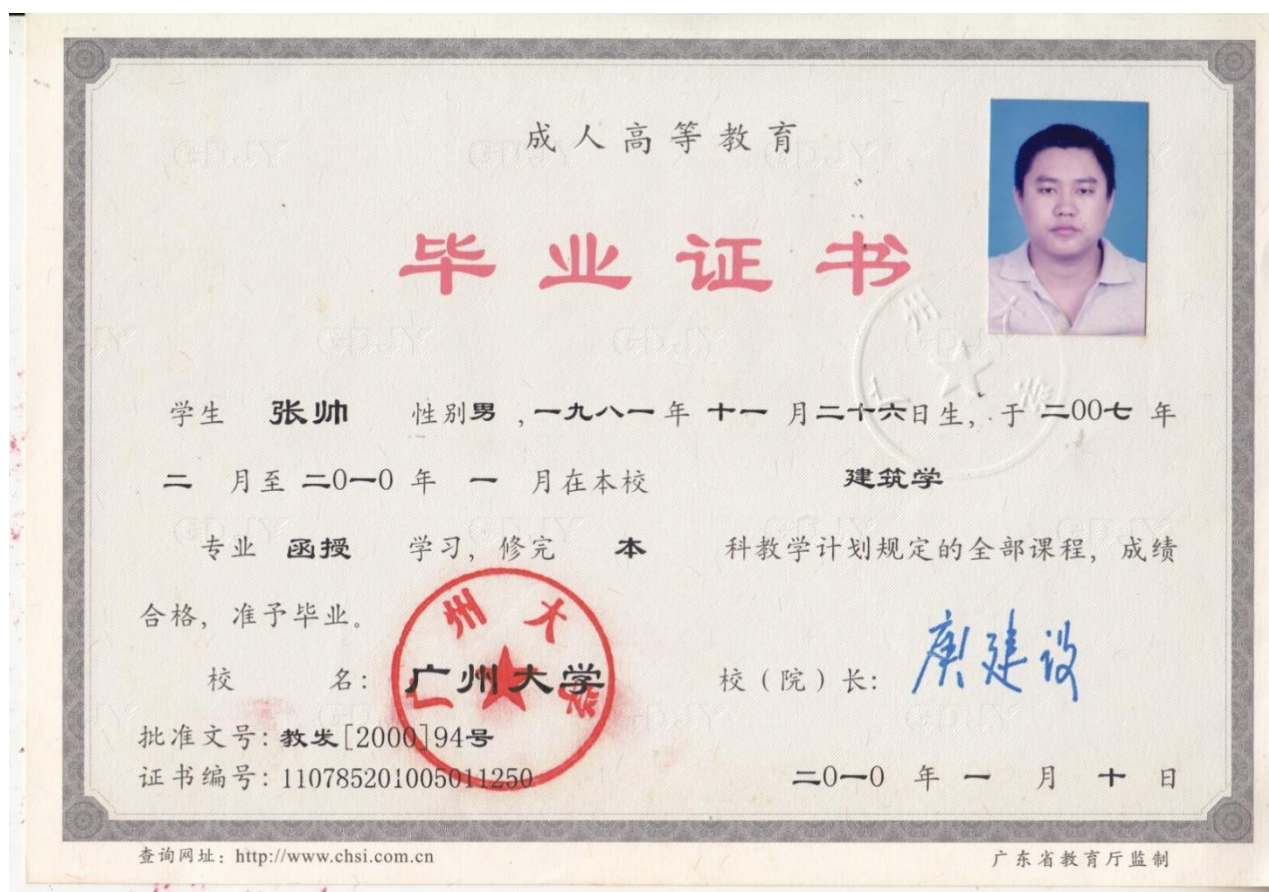 成人高等教育
毕业证书
学生 张帅 性别男,一九八一年 十一 月二十六日生,于 二00七 年
二 月至 二0一0 年 一 月在本校 建筑学
专业 函授 学习,修完 本 科教学计划规定的全部课程,成绩
合格,准予毕业。
校 名:广州大学 校(院)长:庾建设
批准文号:教发[2000]94号
证书编号:110785201005011250 二0一0 年 一 月 十 日
查询网址:http://www.chsi.com.cn 广东省教育厅监制
广州大学
广州大学